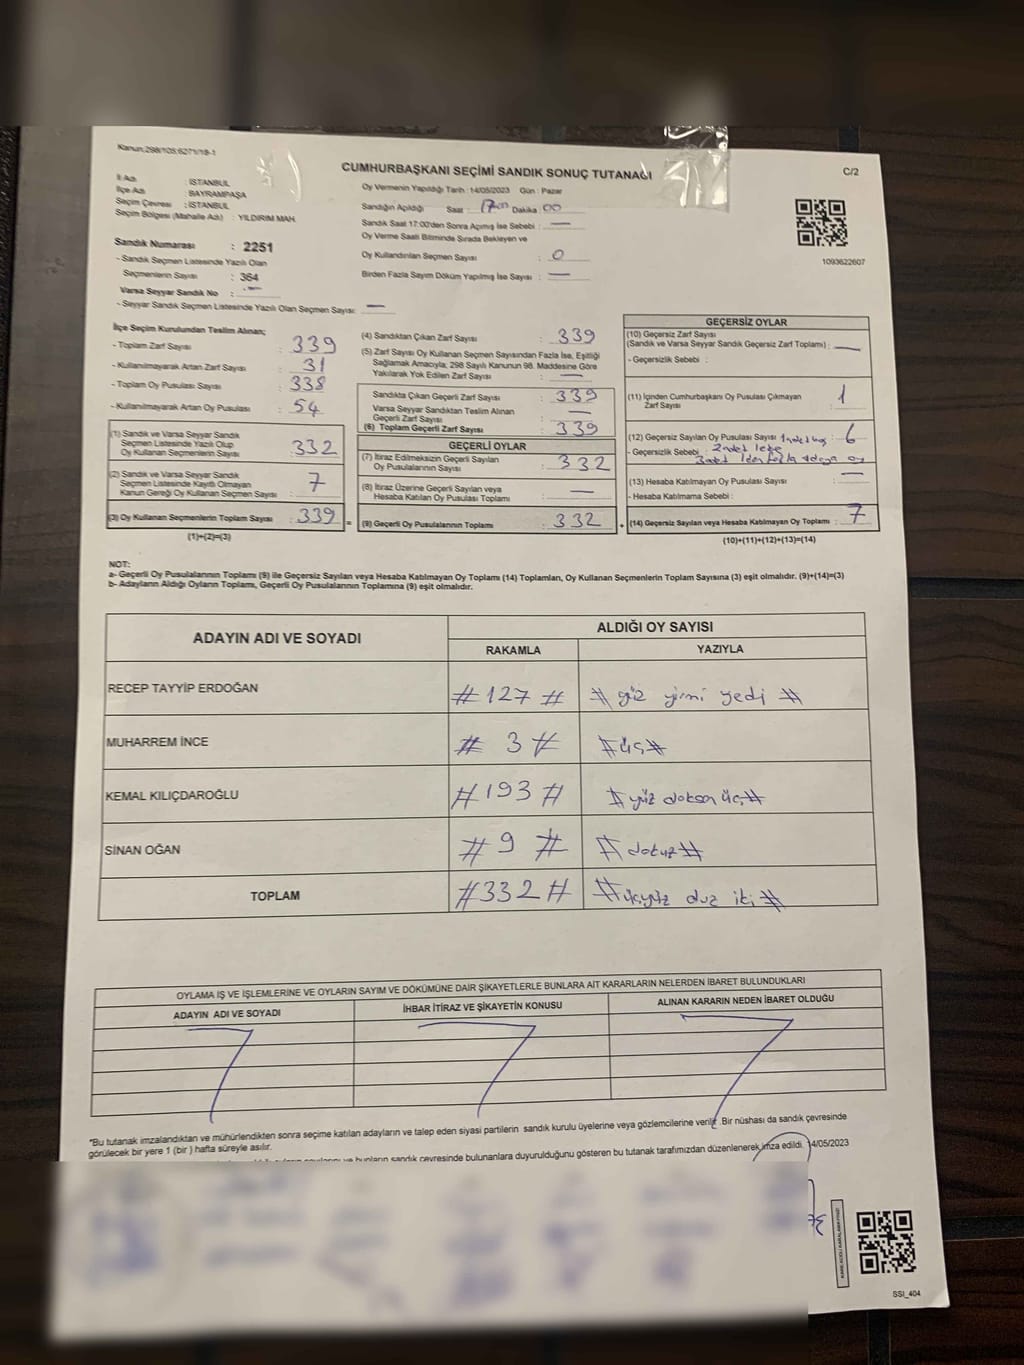 Kanun:298/105;6271/18-1
CUMHURBAŞKANI SEÇİMİ SANDIK SONUÇ TUTANAĞI
C/2
İl Adı : İSTANBUL
İlçe Adı : BAYRAMPAŞA
Seçim Çevresi : İSTANBUL
Seçim Bölgesi (Mahalle Adı) : YILDIRIM MAH.
Sandık Numarası : 2251
- Sandık Seçmen Listesinde Yazılı Olan
Seçmenlerin Sayısı : 364
Varsa Seyyar Sandık No : -
- Seyyar Sandık Seçmen Listesinde Yazılı Olan Seçmen Sayısı: —
Oy Vermenin Yapıldığı Tarih :14/05/2023 Gün : Pazar
Sandığın Açıldığı Saat : 17 00 Dakika : 00
Sandık Saat 17:00'den Sonra Açımış İse Sebebi : —
Oy Verme Saati Bitiminde Sırada Bekleyen ve
Oy Kullandırılan Seçmen Sayısı : 0
Birden Fazla Sayım Döküm Yapılmış İse Sayısı : —
1093622607
İlçe Seçim Kurulundan Teslim Alınan;
- Toplam Zarf Sayısı : 339
- Kullanılmayarak Artan Zarf Sayısı : 31
- Toplam Oy Pusulası Sayısı : 338
- Kullanılmayarak Artan Oy Pusulası : 54
(1) Sandık ve Varsa Seyyar Sandık
Seçmen Listesinde Yazılı Olup
Oy Kullanan Seçmenlerin Sayısı : 332
(2) Sandık ve Varsa Seyyar Sandık
Seçmen Listesinde Kayıtlı Olmayan
Kanun Gereği Oy Kullanan Seçmen Sayısı : 7
(3) Oy Kullanan Seçmenlerin Toplam Sayısı : 339 =
(1)+(2)=(3)
(4) Sandıktan Çıkan Zarf Sayısı : 339
(5) Zarf Sayısı Oy Kullanan Seçmen Sayısından Fazla İse, Eşitliği
Sağlamak Amacıyla, 298 Sayılı Kanunun 98. Maddesine Göre
Yakılarak Yok Edilen Zarf Sayısı : —
Sandıkta Çıkan Geçerli Zarf Sayısı : 339
Varsa Seyyar Sandıktan Teslim Alınan
Geçerli Zarf Sayısı : —
(6) Toplam Geçerli Zarf Sayısı : 339
GEÇERLİ OYLAR
(7) İtiraz Edilmeksizin Geçerli Sayılan
Oy Pusulalarının Sayısı : 332
(8) İtiraz Üzerine Geçerli Sayılan veya
Hesaba Katılan Oy Pusulası Toplamı : —
(9) Geçerli Oy Pusulalarının Toplamı : 332 +
GEÇERSİZ OYLAR
(10) Geçersiz Zarf Sayısı
(Sandık ve Varsa Seyyar Sandık Geçersiz Zarf Toplamı) : —
- Geçersizlik Sebebi :
(11) İçinden Cumhurbaşkanı Oy Pusulası Çıkmayan
Zarf Sayısı : 1
(12) Geçersiz Sayılan Oy Pusulası Sayısı : 1 adet 6
- Geçersizlik Sebebi : 2 adet leke
3 adet 1 den fazla adaya oy
(13) Hesaba Katılmayan Oy Pusulası Sayısı : —
- Hesaba Katılmama Sebebi :
(14) Geçersiz Sayılan veya Hesaba Katılmayan Oy Toplamı : 7
(10)+(11)+(12)+(13)=(14)
NOT:
a- Geçerli Oy Pusulalarının Toplamı (9) ile Geçersiz Sayılan veya Hesaba Katılmayan Oy Toplamı (14) Toplamları, Oy Kullanan Seçmenlerin Toplam Sayısına (3) eşit olmalıdır. (9)+(14)=(3)
b- Adayların Aldığı Oyların Toplamı, Geçerli Oy Pusulalarının Toplamına (9) eşit olmalıdır.
ADAYIN ADI VE SOYADI
ALDIĞI OY SAYISI
RAKAMLA YAZIYLA
RECEP TAYYİP ERDOĞAN # 127 # # yüz yirmi yedi #
MUHARREM İNCE # 3 # # üç #
KEMAL KILIÇDAROĞLU # 193 # # yüz doksan üç #
SİNAN OĞAN # 9 # # dokuz #
TOPLAM # 332 # # üçyüz otuz iki #
OYLAMA İŞ VE İŞLEMLERİNE VE OYLARIN SAYIM VE DÖKÜMÜNE DAİR ŞİKAYETLERLE BUNLARA AİT KARARLARIN NELERDEN İBARET BULUNDUKLARI
ADAYIN ADI VE SOYADI İHBAR İTİRAZ VE ŞİKAYETİN KONUSU ALINAN KARARIN NEDEN İBARET OLDUĞU
*Bu tutanak imzalandıktan ve mühürlendikten sonra seçime katılan adayların ve talep eden siyasi partilerin sandık kurulu üyelerine veya gözlemcilerine verilir. Bir nüshası da sandık çevresinde
görülecek bir yere 1 (bir ) hafta süreyle asılır.
ve bunların sandık çevresinde bulunanlara duyurulduğunu gösteren bu tutanak tarafımızdan düzenlenerek imza edildi. 14/05/2023
SSI_404